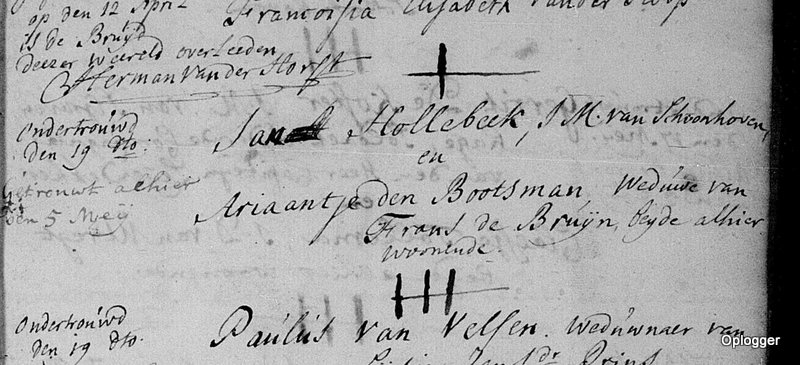 op den 12 April
is de Bruijd
deezer weereld overleeden
Herman van der Horst
Francoisia Elisabeth van der
Ondertrouwd
den 19 dto.
Jan Hollebeek, J.M. van Schoonhoven,
en
Getrouwt alhier
den 5 Meij
Ariaantje den Bootsman, Weduwe van
Frans de Bruijn, beyde alhier
woonende.
Ondertrouwd
den 19 dto.
Paulus van Velsen. Weduwnaer van
Oplogger